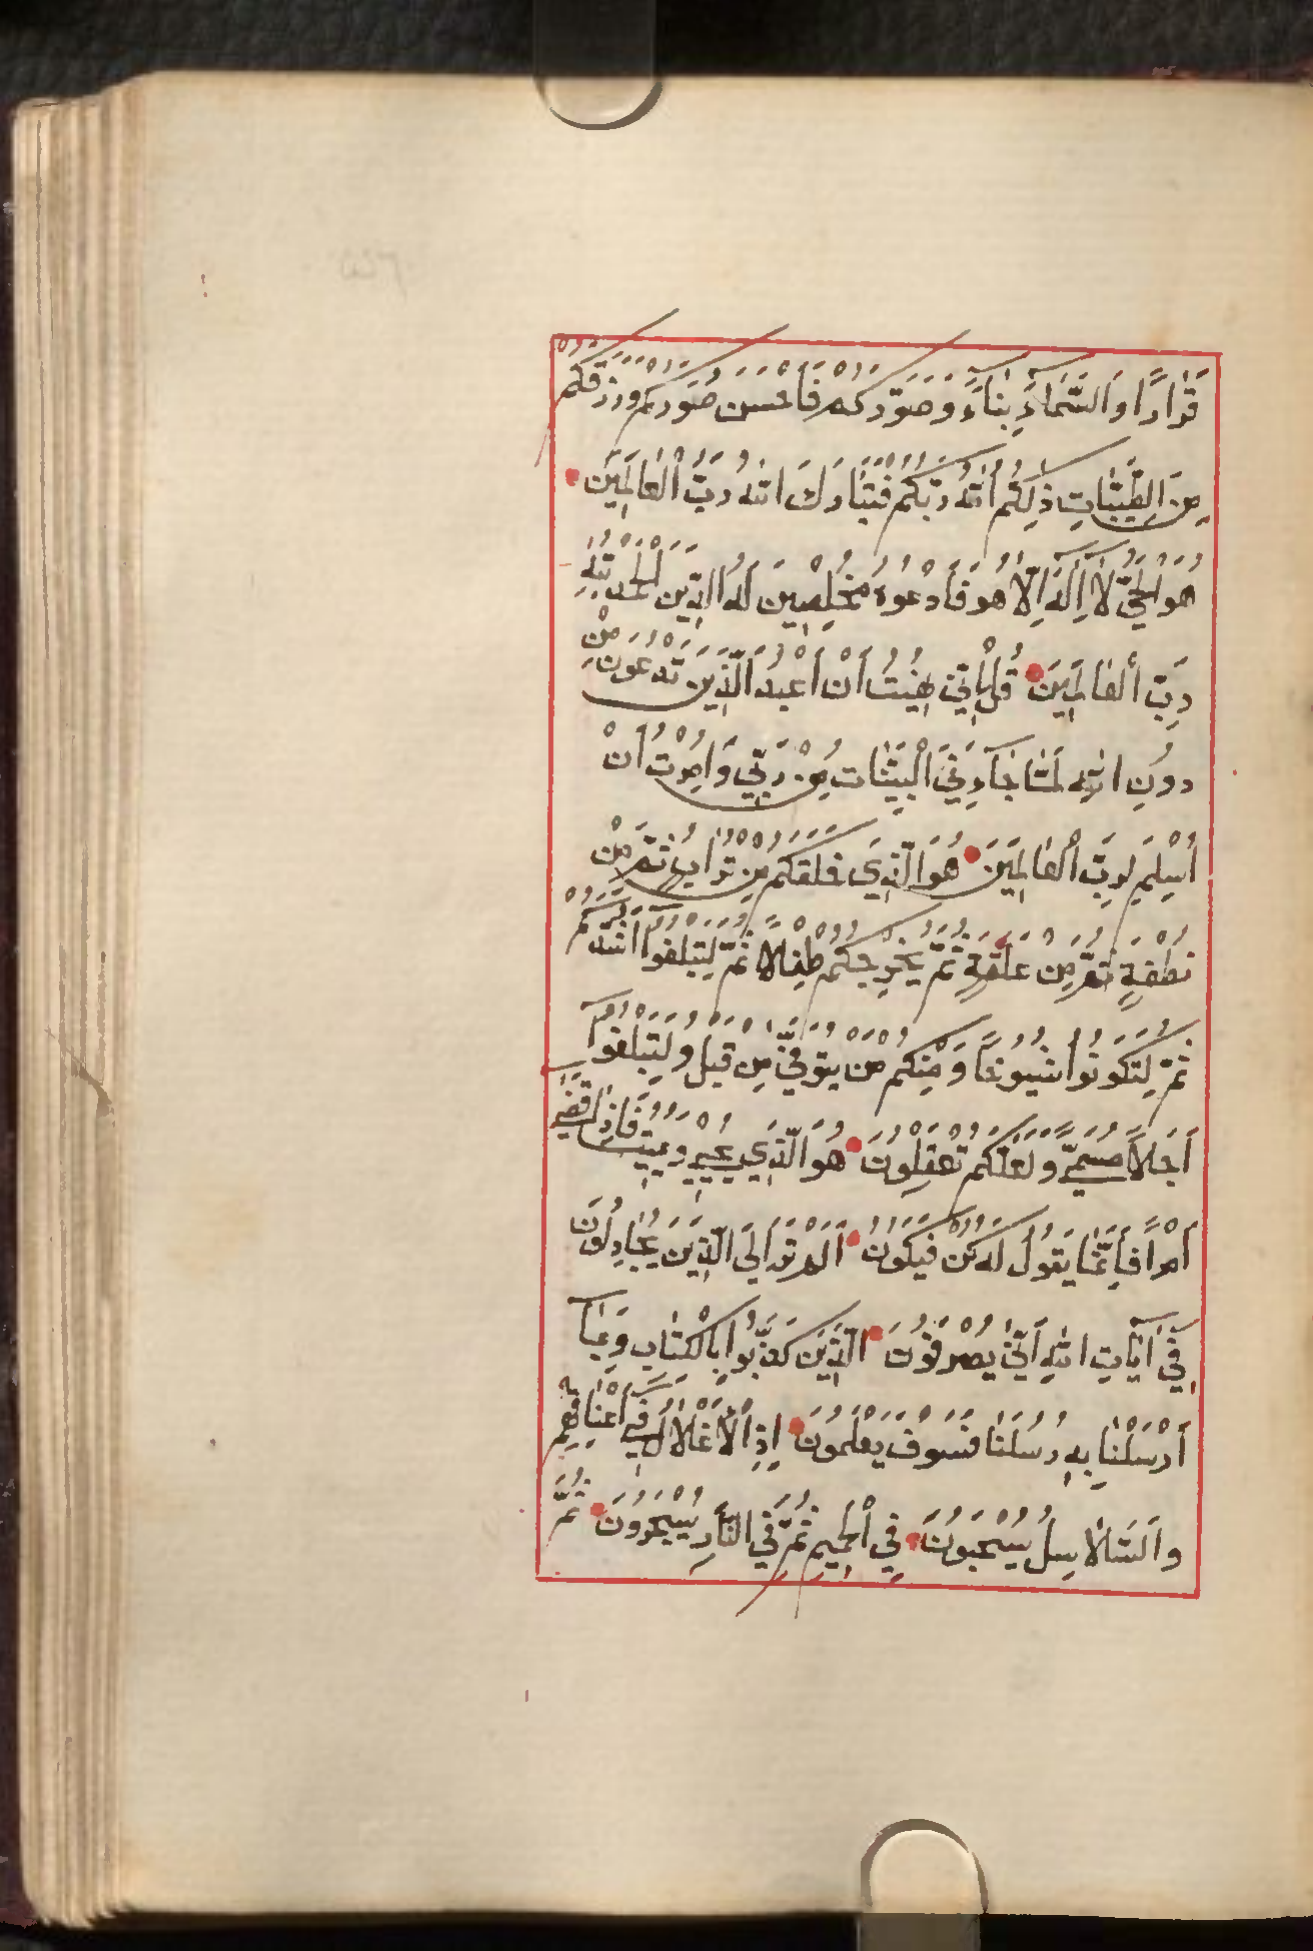 قَرَارًا وَالسَّمَاءَ بِنَاءً وَصَوَّرَكُمْ فَأَحْسَنَ صُوَرَكُمْ وَرَزَقَكُمْ
مِنَ الطَّيِّبَاتِ ذٰلِكُمُ اللّٰهُ رَبُّكُمْ فَتَبَارَكَ اللّٰهُ رَبُّ الْعَالَمِينَ
هُوَ الْحَيُّ لَا إِلٰهَ إِلَّا هُوَ فَادْعُوهُ مُخْلِصِينَ لَهُ الدِّينَ الْحَمْدُ لِلّٰهِ
رَبِّ الْعَالَمِينَ قُلْ إِنِّي نُهِيتُ أَنْ أَعْبُدَ الَّذِينَ تَدْعُونَ مِنْ
دُونِ اللّٰهِ لَمَّا جَاءَنِيَ الْبَيِّنَاتُ مِنْ رَبِّي وَأُمِرْتُ أَنْ
أُسْلِمَ لِرَبِّ الْعَالَمِينَ هُوَ الَّذِي خَلَقَكُمْ مِنْ تُرَابٍ ثُمَّ مِنْ
نُطْفَةٍ ثُمَّ مِنْ عَلَقَةٍ ثُمَّ يُخْرِجُكُمْ طِفْلًا ثُمَّ لِتَبْلُغُوا أَشُدَّكُمْ
ثُمَّ لِتَكُونُوا شُيُوخًا وَمِنْكُمْ مَنْ يُتَوَفّٰى مِنْ قَبْلُ وَلِتَبْلُغُوا
أَجَلًا مُسَمًّى وَلَعَلَّكُمْ تَعْقِلُونَ هُوَ الَّذِي يُحْيِي وَيُمِيتُ فَإِذَا قَضٰى
أَمْرًا فَإِنَّمَا يَقُولُ لَهُ كُنْ فَيَكُونُ أَلَمْ تَرَ إِلَى الَّذِينَ يُجَادِلُونَ
فِي آيَاتِ اللّٰهِ أَنّٰى يُصْرَفُونَ الَّذِينَ كَذَّبُوا بِالْكِتَابِ وَبِمَا
أَرْسَلْنَا بِهِ رُسُلَنَا فَسَوْفَ يَعْلَمُونَ إِذِ الْأَغْلَالُ فِي أَعْنَاقِهِمْ
وَالسَّلَاسِلُ يُسْحَبُونَ فِي الْحَمِيمِ ثُمَّ فِي النَّارِ يُسْجَرُونَ ثُمَّ